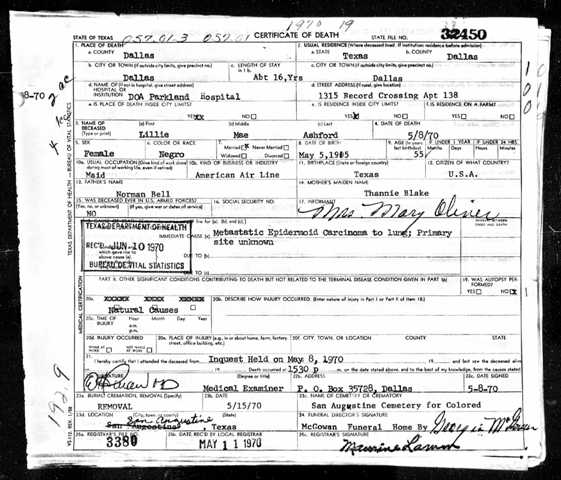 1970 19
STATE OF TEXAS 057.01 3 057.01 CERTIFICATE OF DEATH STATE FILE NO. 32450
1. PLACE OF DEATH
a. COUNTY
Dallas
2. USUAL RESIDENCE (Where deceased lived. If institution: residence before admission)
a. STATE Texas b. COUNTY Dallas
b. CITY OR TOWN (If outside city limits, give precinct no.)
Dallas
c. LENGTH OF STAY
Abt 16,Yrs
c. CITY OR TOWN (If outside city limits, give precinct no.)
Dallas
d. NAME OF (If not in hospital, give street address)
HOSPITAL OR
INSTITUTION
DOA Parkland Hospital
d. STREET ADDRESS
1315 Record Crossing Apt 138
e. IS PLACE OF DEATH INSIDE CITY LIMITS?
YES NO
e. IS RESIDENCE INSIDE CITY LIMITS?
YES NO
f. IS RESIDENCE ON A FARM?
YES NO
3. NAME OF
DECEASED
(Type or print)
(a) First (b) Middle (c) Last
Lillie Mae Ashford
4. DATE OF DEATH
5/8/70
5. SEX
Female
6. COLOR OR RACE
Negro
7. Married Never Married
Widowed Divorced
8. DATE OF BIRTH
May 5,1915
9. AGE
55
10a. USUAL OCCUPATION
Maid
10b. KIND OF BUSINESS OR INDUSTRY
American Air Line
11. BIRTHPLACE (State or foreign country)
Texas
12. CITIZEN OF WHAT COUNTRY?
U.S.A.
13. FATHER'S NAME
Norman Bell
14. MOTHER'S MAIDEN NAME
Thannie Blake
15. WAS DECEASED EVER IN U.S. ARMED FORCES?
NO
16. SOCIAL SECURITY NO.
17. INFORMANT
Mrs. Mary Oliver
TEXAS DEPARTMENT OF HEALTH
REC'D JUN 10 1970
BUREAU OF VITAL STATISTICS
IMMEDIATE CAUSE (a)
Metastatic Epidermoid Carcinoma to lung; Primary
site unknown
DUE TO (b)
DUE TO (c)
PART II. OTHER SIGNIFICANT CONDITIONS CONTRIBUTING TO DEATH BUT NOT RELATED TO THE TERMINAL DISEASE CONDITION GIVEN IN PART I(a)
19. WAS AUTOPSY PERFORMED?
YES NO
20a. XXXXX XXXX XXXXX
Natural Causes
20b. DESCRIBE HOW INJURY OCCURRED. (Enter nature of injury in Part I or Part II of item 18.)
20c. TIME OF INJURY
Hour Month Day Year
a.m.
p.m.
20d. INJURY OCCURRED
20e. PLACE OF INJURY (e.g., in or about home, farm, factory, street, office building, etc.)
20f. CITY, TOWN, OR LOCATION COUNTY STATE
21. I hereby certify that I attended the deceased from Inquest Held on May 8, 1970 and last saw the deceased alive
Death occurred at 1530 p m., on the date stated above, and to the best of my knowledge, from the causes stated.
22a. SIGNATURE (Degree or title)
Medical Examiner
22b. ADDRESS
P. O. Box 35728, Dallas
22c. DATE SIGNED
5-8-70
23a. BURIAL, CREMATION, REMOVAL (Specify)
REMOVAL
23b. DATE
5/15/70
23c. NAME OF CEMETERY OR CREMATORY
San Augustine Cemetery for Colored
23d. LOCATION (City, town, or county) (State)
San Augustine
San Augustines Texas
24. FUNERAL DIRECTOR'S SIGNATURE
McGowan Funeral Home By
25a. REGISTRAR'S FILE NO.
3380
25b. DATE REC'D BY LOCAL REGISTRAR
MAY 11 1970
25c. REGISTRAR'S SIGNATURE
TEXAS DEPARTMENT OF HEALTH — BUREAU OF VITAL STATISTICS
MEDICAL CERTIFICATION
8-70
1929